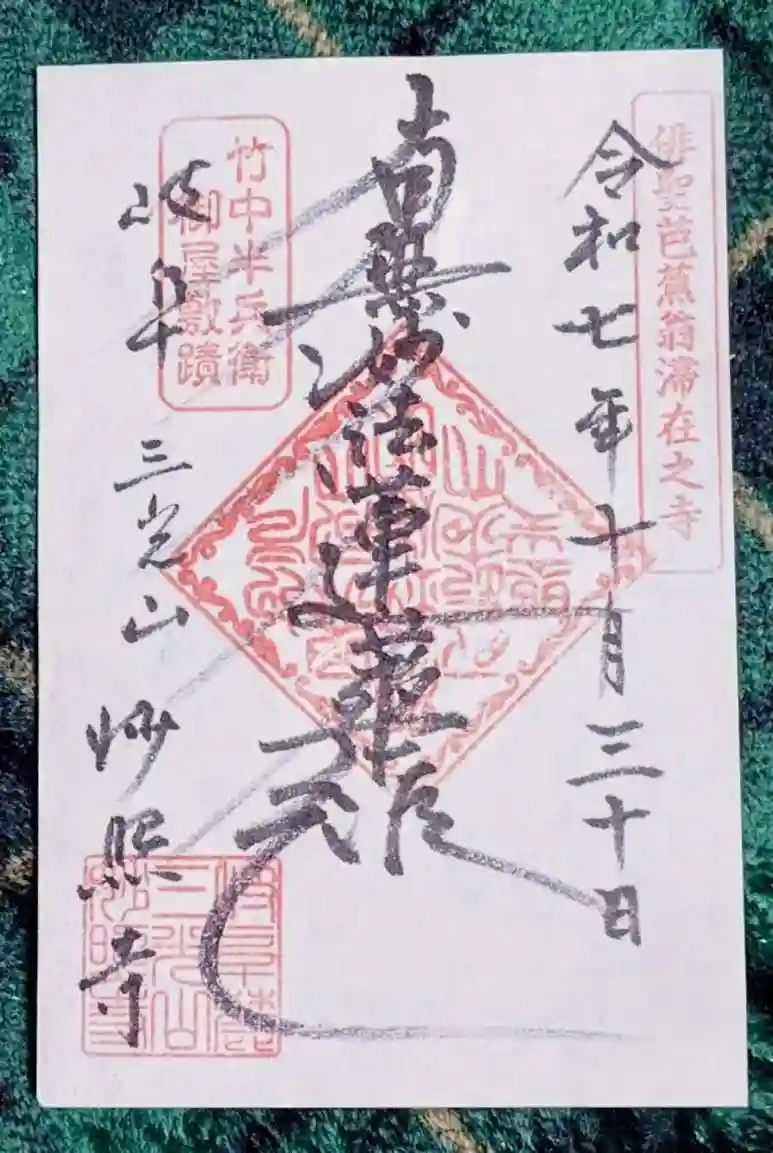 俳聖芭蕉翁滞在之寺
令和七年十月三十日
南無妙法蓮華経
竹中半兵衛
御屋敷蹟
岐阜
三光山
妙照寺